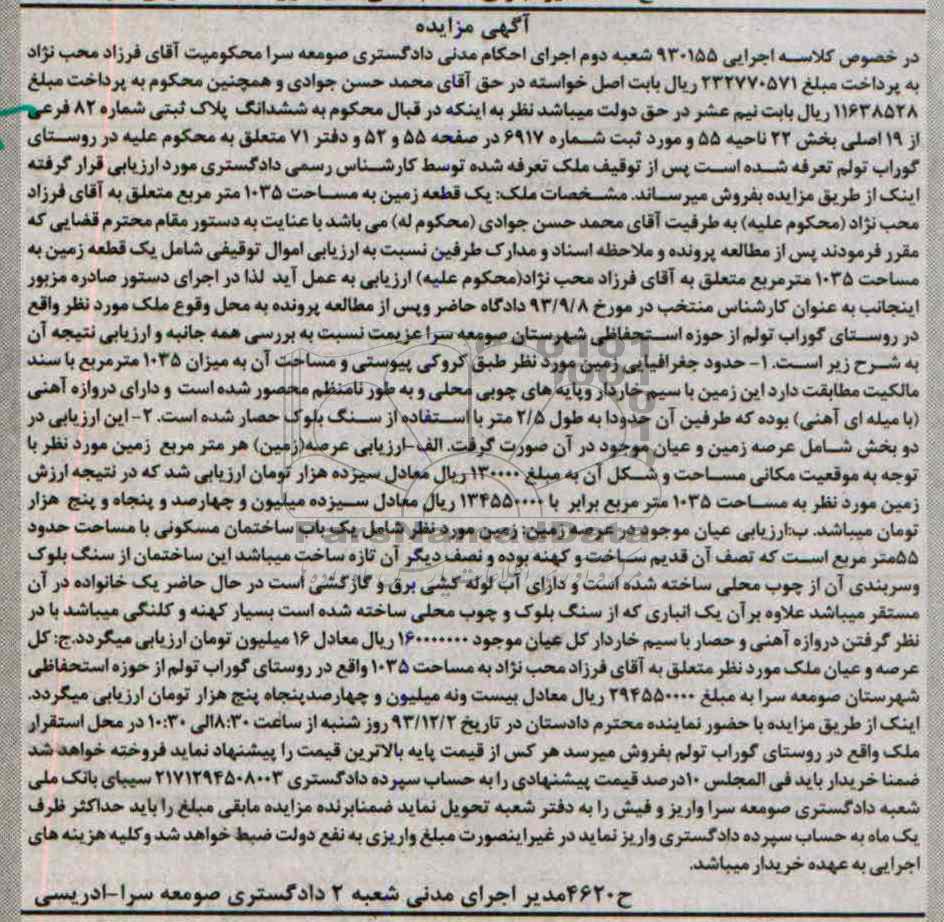 آگهی مزایده
در خصوص کلاسه اجرایی ۹۳۰۱۵۵ شعبه دوم اجرای احکام مدنی دادگستری صومعه سرا محکومیت آقای فرزاد محب نژاد
به پرداخت مبلغ ۲۳۲۷۷۰۵۷۱ ریال بابت اصل خواسته در حق آقای محمد حسن جوادی و همچنین محکوم به پرداخت مبلغ
۱۱۶۳۸۵۲۸ ریال بابت نیم عشر در حق دولت میباشد نظر به اینکه در قبال محکوم به ششدانگ پلاک ثبتی شماره ۸۲ فرعی
از ۱۹ اصلی بخش ۲۲ ناحیه ۵۵ و مورد ثبت شماره ۶۹۱۷ در صفحه ۵۵ و ۵۲ و دفتر ۷۱ متعلق به محکوم علیه در روستای
گوراب تولم تعرفه شده است پس از توقیف ملک تعرفه شده توسط کارشناس رسمی دادگستری مورد ارزیابی قرار گرفته
اینک از طریق مزایده بفروش میرساند. مشخصات ملک: یک قطعه زمین به مساحت ۱۰۳۵ متر مربع متعلق به آقای فرزاد
محب نژاد (محکوم علیه) به طرفیت آقای محمد حسن جوادی (محکوم له) می باشد با عنایت به دستور مقام محترم قضایی که
مقرر فرمودند پس از مطالعه پرونده و ملاحظه اسناد و مدارک طرفین نسبت به ارزیابی اموال توقیفی شامل یک قطعه زمین به
مساحت ۱۰۳۵ مترمربع متعلق به آقای فرزاد محب نژاد(محکوم علیه) ارزیابی به عمل آید لذا در اجرای دستور صادره مزبور
اینجانب به عنوان کارشناس منتخب در مورخ ۹۳/۹/۸ دادگاه حاضر وپس از مطالعه پرونده به محل وقوع ملک مورد نظر واقع
در روستای گوراب تولم از حوزه استحفاظی شهرستان صومعه سرا عزیمت نسبت به بررسی همه جانبه و ارزیابی نتیجه آن
به شرح زیر است. ۱- حدود جغرافیایی زمین مورد نظر طبق کروکی پیوستی و مساحت آن به میزان ۱۰۳۵ مترمربع با سند
مالکیت مطابقت دارد این زمین با سیم خاردار وپایه های چوبی محلی و به طور نامنظم محصور شده است و دارای دروازه آهنی
(با میله ای آهنی) بوده که طرفین آن حدودا به طول ۲/۵ متر با استفاده از سنگ بلوک حصار شده است. ۲- این ارزیابی در
دو بخش شامل عرصه زمین و عیان موجود در آن صورت گرفت. الف-ارزیابی عرصه(زمین) هر متر مربع زمین مورد نظر با
توجه به موقعیت مکانی مساحت و شکل آن به مبلغ ۱۳۰۰۰۰ ریال معادل سیزده هزار تومان ارزیابی شد که در نتیجه ارزش
زمین مورد نظر به مساحت ۱۰۳۵ متر مربع برابر با ۱۳۴۵۵۰۰۰۰ ریال معادل سیزده میلیون و چهارصد و پنجاه و پنج هزار
تومان میباشد. ب:ارزیابی عیان موجود در عرصه زمین: زمین مورد نظر شامل یک باب ساختمان مسکونی با مساحت حدود
۵۵متر مربع است که نصف آن قدیم ساخت و کهنه بوده و نصف دیگر آن تازه ساخت میباشد این ساختمان از سنگ بلوک
وسربندی آن از چوب محلی ساخته شده است و دارای آب لوله کشی برق و گازکشی است در حال حاضر یک خانواده در آن
مستقر میباشد علاوه برآن یک انباری که از سنگ بلوک و چوب محلی ساخته شده است بسیار کهنه و کلنگی میباشد با در
نظر گرفتن دروازه آهنی و حصار با سیم خاردار کل عیان موجود ۱۶۰۰۰۰۰۰۰ ریال معادل ۱۶ میلیون تومان ارزیابی میگردد.ج: کل
عرصه و عیان ملک مورد نظر متعلق به آقای فرزاد محب نژاد به مساحت ۱۰۳۵ واقع در روستای گوراب تولم از حوزه استحفاظی
شهرستان صومعه سرا به مبلغ ۲۹۴۵۵۰۰۰۰ ریال معادل بیست ونه میلیون و چهارصدپنجاه پنج هزار تومان ارزیابی میگردد.
اینک از طریق مزایده با حضور نماینده محترم دادستان در تاریخ ۹۳/۱۲/۲ روز شنبه از ساعت ۸:۳۰الی ۱۰:۳۰ در محل استقرار
ملک واقع در روستای گوراب تولم بفروش میرسد هر کس از قیمت پایه بالاترین قیمت را پیشنهاد نماید فروخته خواهد شد
ضمنا خریدار باید فی المجلس ۱۰درصد قیمت پیشنهادی را به حساب سپرده دادگستری ۲۱۷۱۲۹۴۵۰۸۰۰۳ سیبای بانک ملی
شعبه دادگستری صومعه سرا واریز و فیش را به دفتر شعبه تحویل نماید ضمنابرنده مزایده مابقی مبلغ را باید حداکثر ظرف
یک ماه به حساب سپرده دادگستری واریز نماید در غیراینصورت مبلغ واریزی به نفع دولت ضبط خواهد شد وکلیه هزینه های
اجرایی به عهده خریدار میباشد.
ح۴۶۲۰مدیر اجرای مدنی شعبه ۲ دادگستری صومعه سرا-ادریسی
ParsNamadData